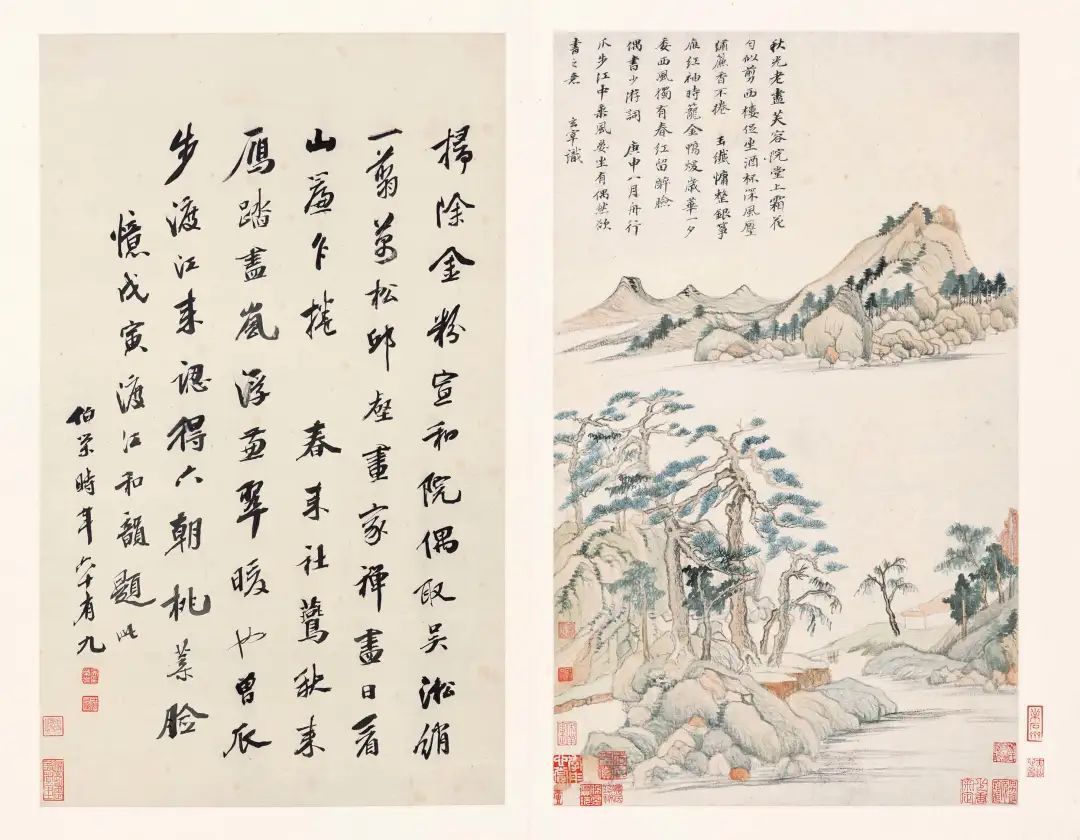 秋光老盡芙容院堂上霜花
勻似剪西樓促坐酒杯深風壓
繡簾香不捲 玉纖慵整銀箏
雁紅袖時籠金鴨煖歲華一夕
委西風獨有春紅留醉臉
偶書少游詞 庚申八月舟行
瓜步江中乘風晏坐有偶然欲
書之意 玄宰識
掃除金粉宣和院偶取吴淞綃
一翦萬松邨壑畫家禪盡日看
山簾乍捲 春來社鷰秋來
鴈踏盡嵐浮兼翠暖也曾瓜
步渡江來認得六朝桃葉臉
憶戊寅渡江和韻題此
伯榮時年六十有九